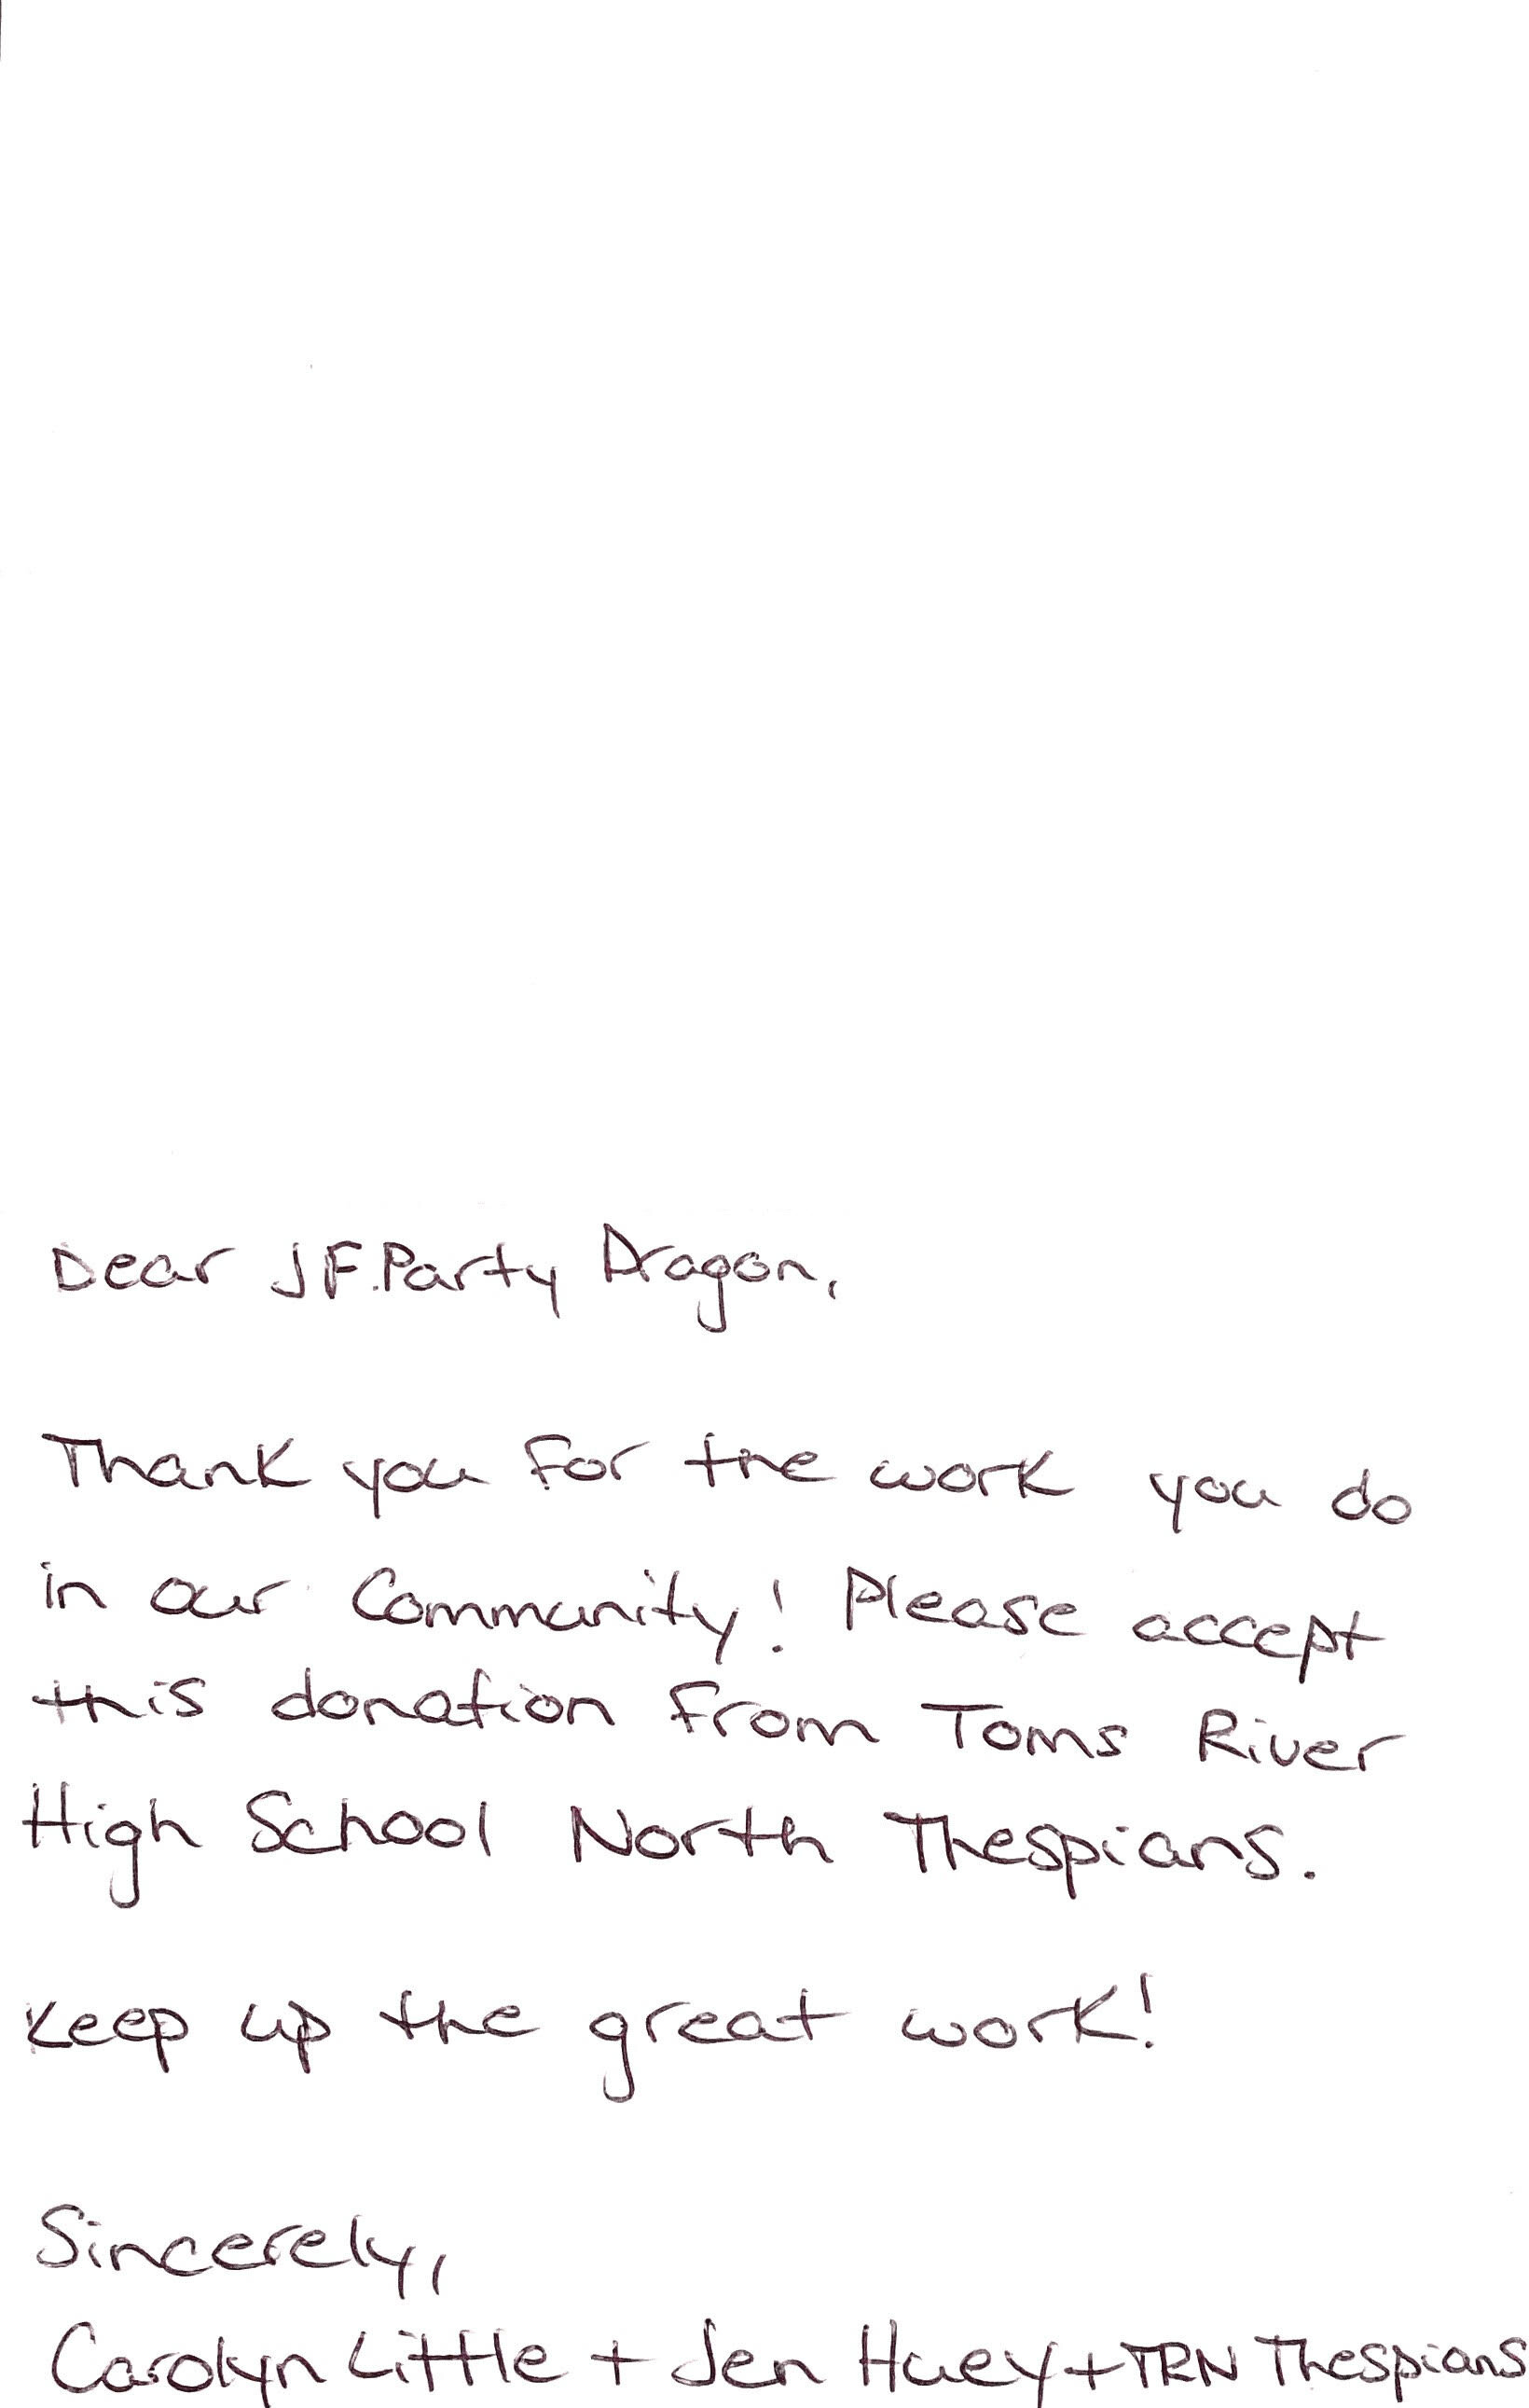 Dear JF.Party Dragon,
Thank you for the work you do
in our Community! Please accept
this donation from Toms River
High School North Thespians.
Keep up the great work!
Sincerely,
Carolyn Little + Jen Huey + TRN Thespians